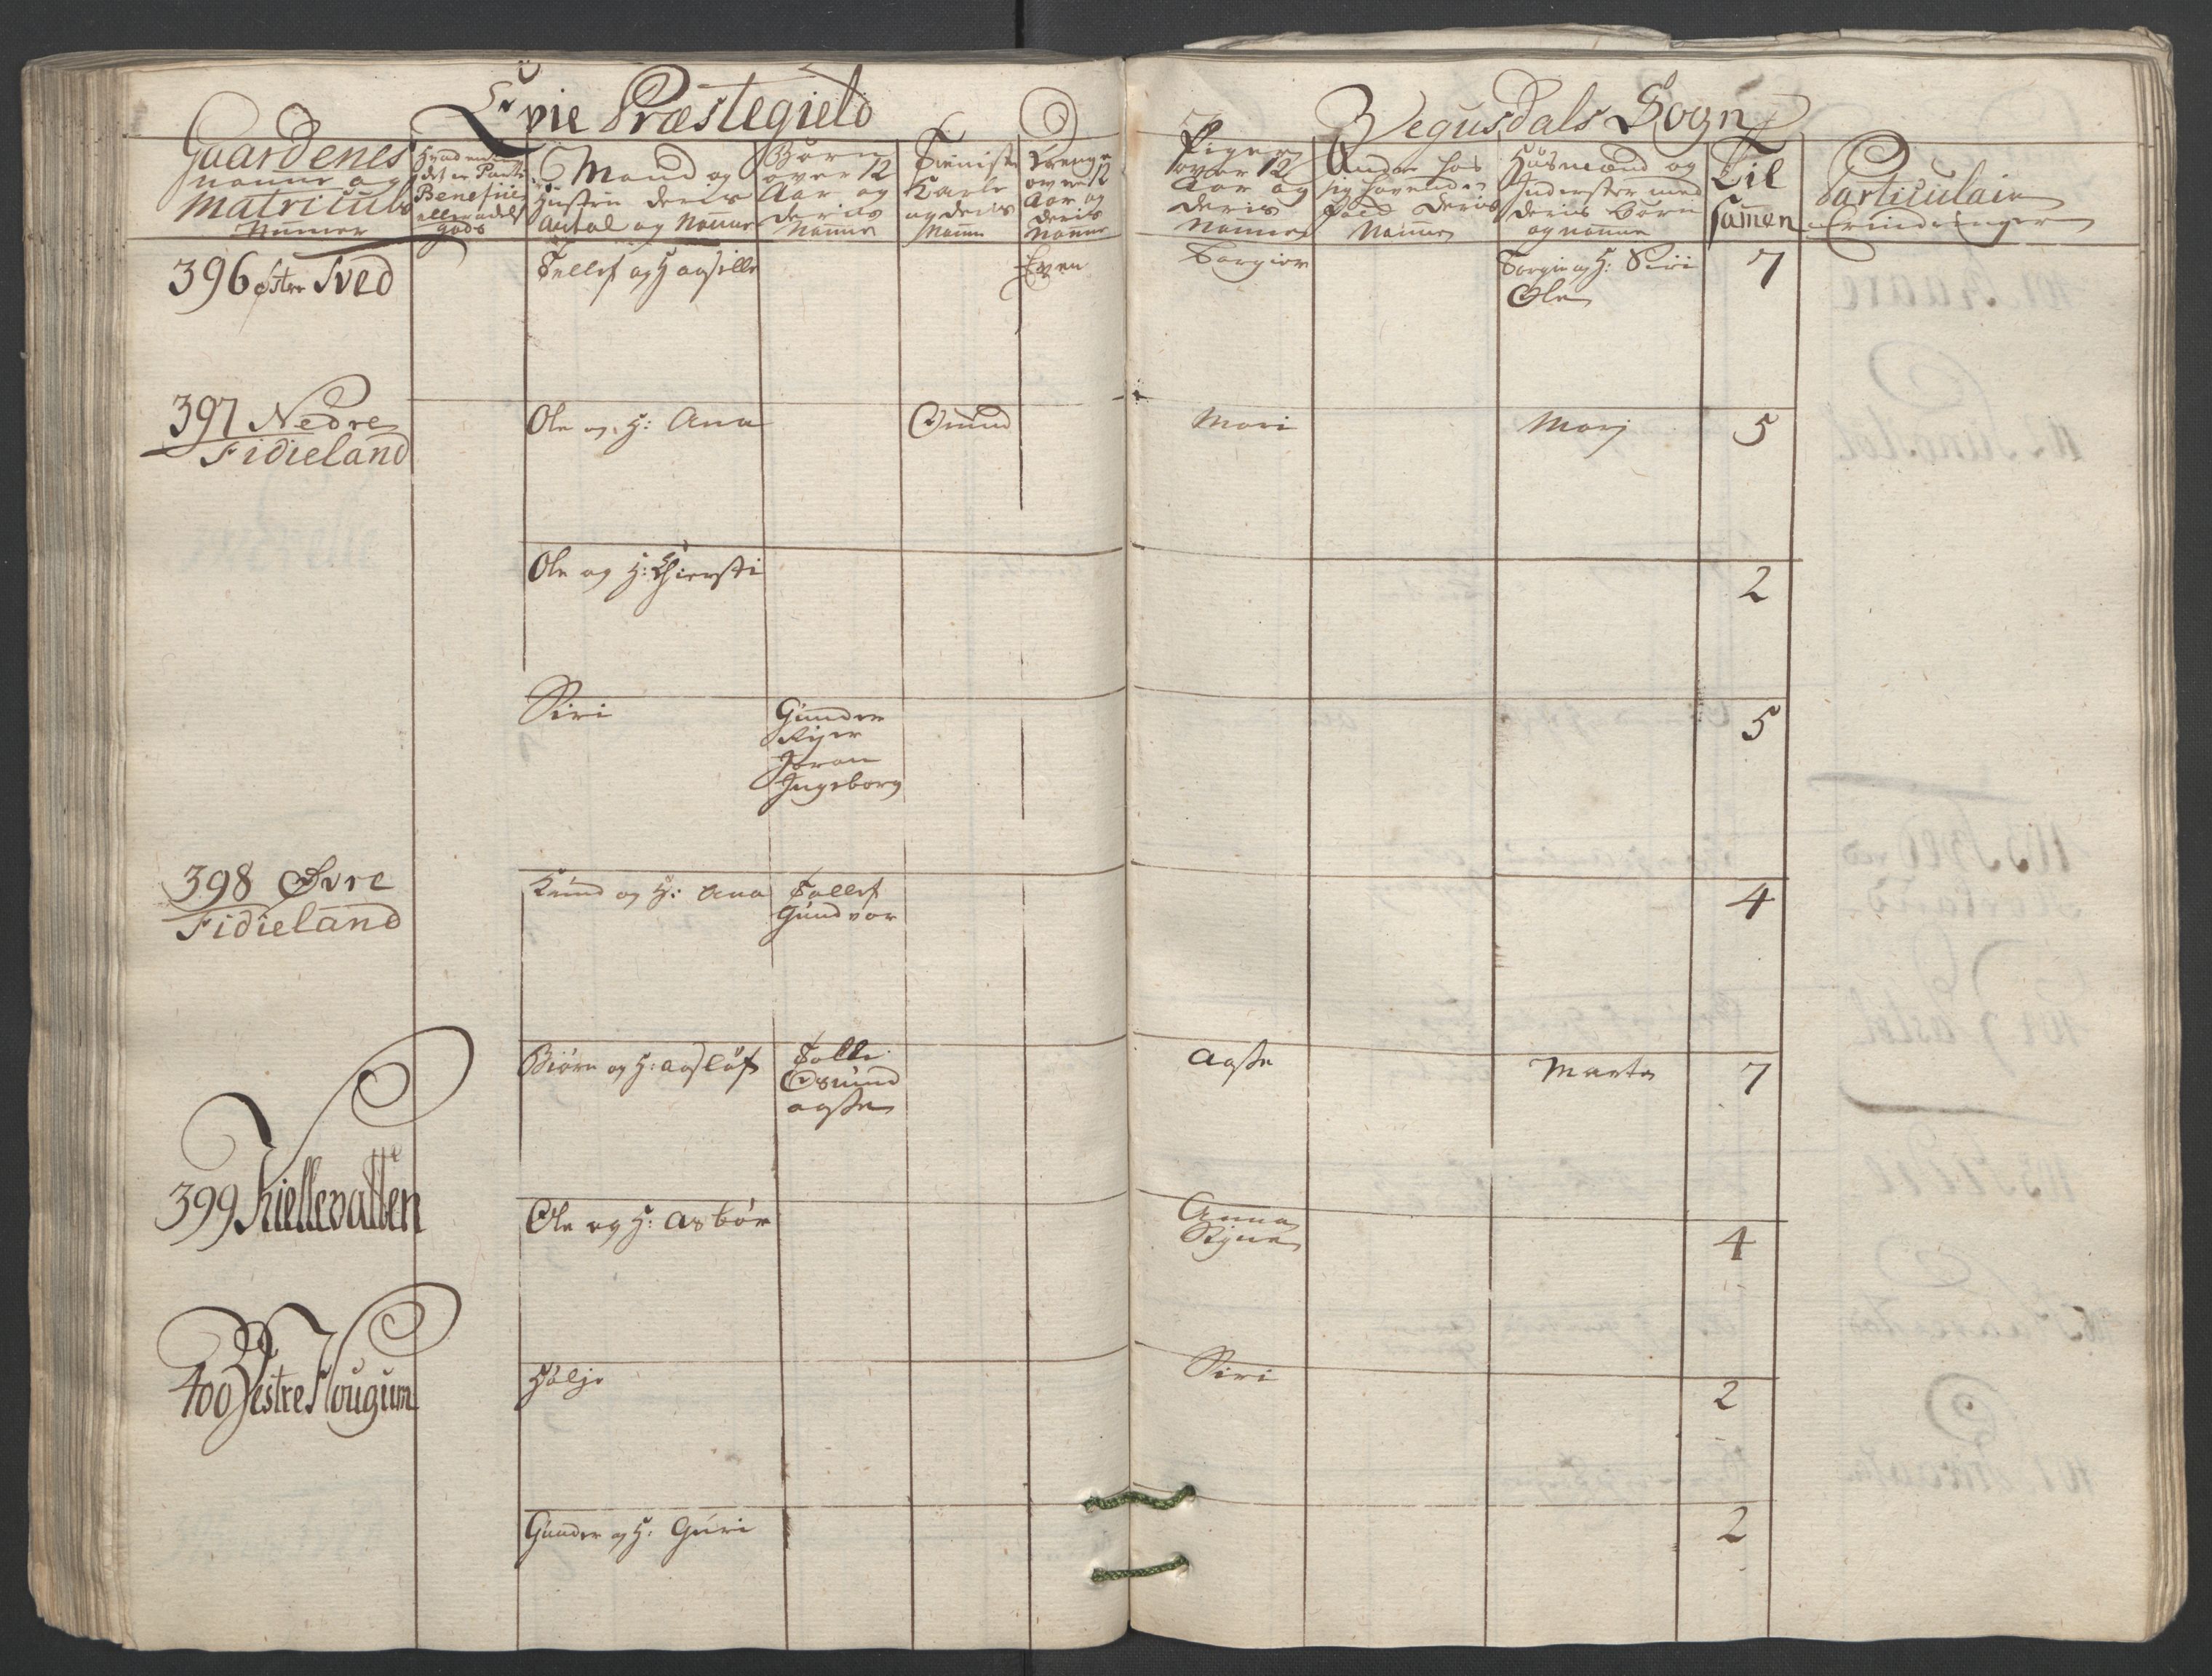 Evie Præstegield
Vegusdals Sogn
Guardenes
Nanne og
Matriculs
Numer
Hvad enten
det er Parti
Beneficie
eller adelß
gods
Mand og
Hustru deris
Antal og Nanne
Børn
over 12
Aar og
deris
Nanne
Tieniste
Karle
og deris
Nanne
Drenge
over 12
Aar og
deris
Nanne
Piger
over 12
Aar og
deris
Nanne
Andre hos
sig havende
deris
Nanne
Husmænd og
Inderster med
deris børn
og nanne
Til
samen
Particulair
Erindringer
396 Øster Tved
Tellef og H aasille
Even
Torgier
Torgie og H: Siri 7
Ole
397 Nedre
Fidieland
Ole og H: Ana
Omund
Mari
Mari
5
Ole og H: Kiersti
2
Siri
Gunder
Joran
Ingeborg
5
398 Øvre
Fidieland
Knud og H: Ana
Tellef
Gundvor
4
Biørn og H: Aasløf
Osmund
aaste
Aaste
Marte
7
399 Kiellevatten
Ole og H: Asbør
Anna
Signe
4
400 Vestre Hougum
Halje
Siri
2
Gunder og H: Guri
2